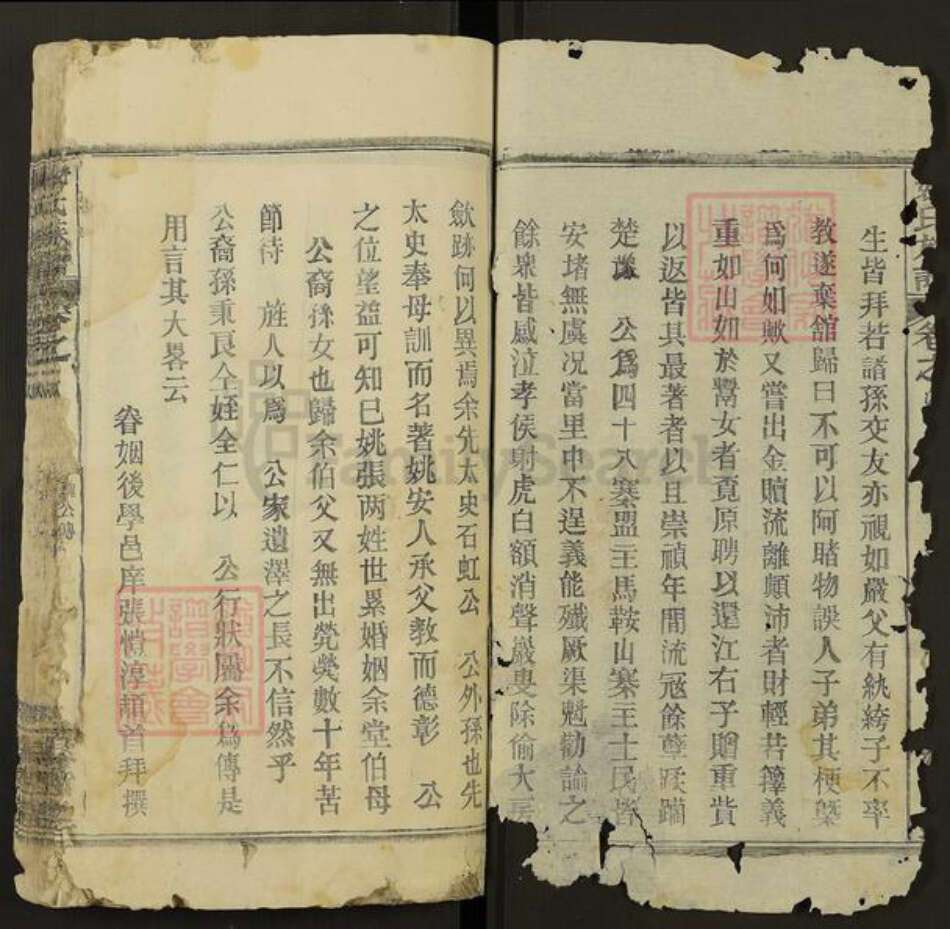 生皆拜若諸孫交友亦視如嚴父有紈綺子不率
教遂棄舘歸曰不可以阿睹物誤人子弟其梗槩
爲何如歟又嘗出金贖流離顛沛者財輕若籜義
重如山如於鬻女者竟原聘以還江右子贈重貲
以返皆其最著者以且崇禎年間流寇餘孽蹂躪
楚豫 公爲四十八寨盟主馬鞍山寨主士民皆
安堵無虞况當里中不逞義能殲厥渠魁勸諭之
餘衆皆感泣孝侯射虎白額消聲巖叟除偷大
歛跡何以異焉余先太史石虹公 公外孫也先
太史奉母訓而名著姚安人承父教而德彰 公
之位望益可知已姚張两姓世累婚姻余堂伯母
公裔孫女也歸余伯父又無出煢煢數十年苦
節待 旌人以爲 公家遺澤之長不信然乎
公裔孫秉良仝姪全仁以 公行狀屬余爲傳是
用言其大畧云
眷姻後學邑庠張愷淳頓首拜撰
卷之
FamilySearch